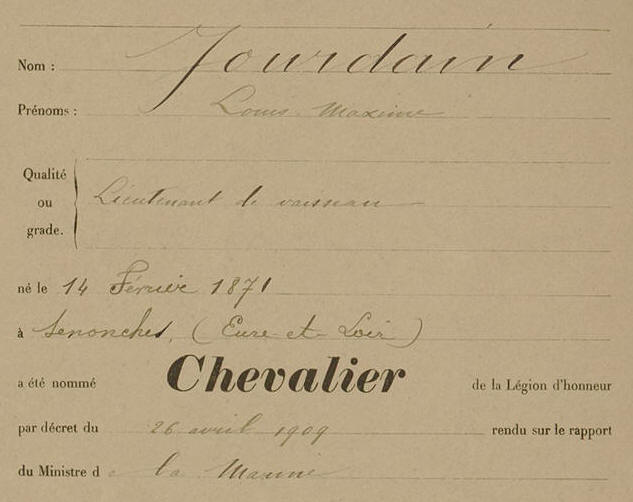 Nom : Jourdain
Prénoms : Louis Maxime
Qualité
ou Lieutenant de vaisseau
grade.
né le 14 Février 1871
à Senonches, (Eure-et-Loir)
a été nommé Chevalier de la Légion d'honneur
par décret du 26 avril 1909 rendu sur le rapport
du Ministre de la Marine